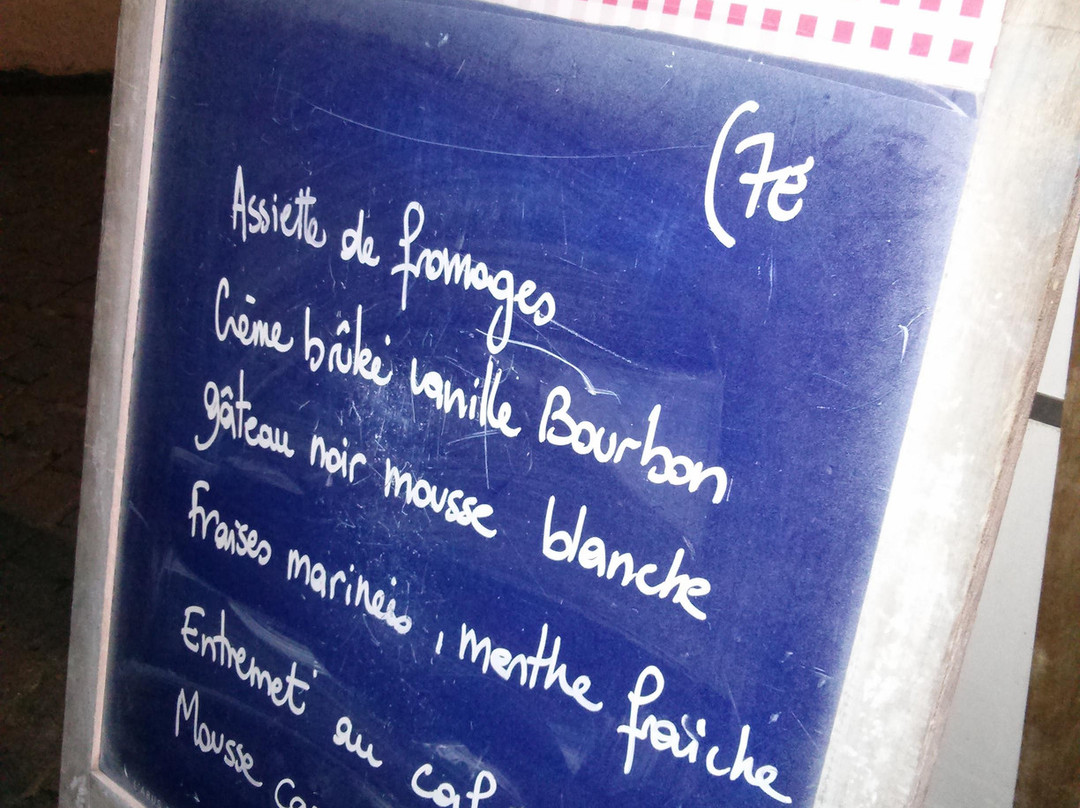 (7€
Assiette de fromages
Crème brûlée vanille Bourbon
gâteau noir mousse blanche
fraises marinées, menthe fraîche
Entremet au
Mousse